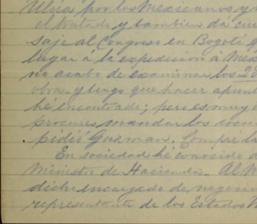 por los Mexicanos y
el tratado y tambien da cue
saje al Congreso en Bogotá
lugar a la expedicion a Mex
no acabo de examinar los
obra, y tengo que hacer apunt
he encontrado; pero es muy
procure mandar los
pidió Guzman. Compre la
En sociedad he conocido a
Ministro de Hacienda. Al M
dicho encargado de negocio
representante de los Estados